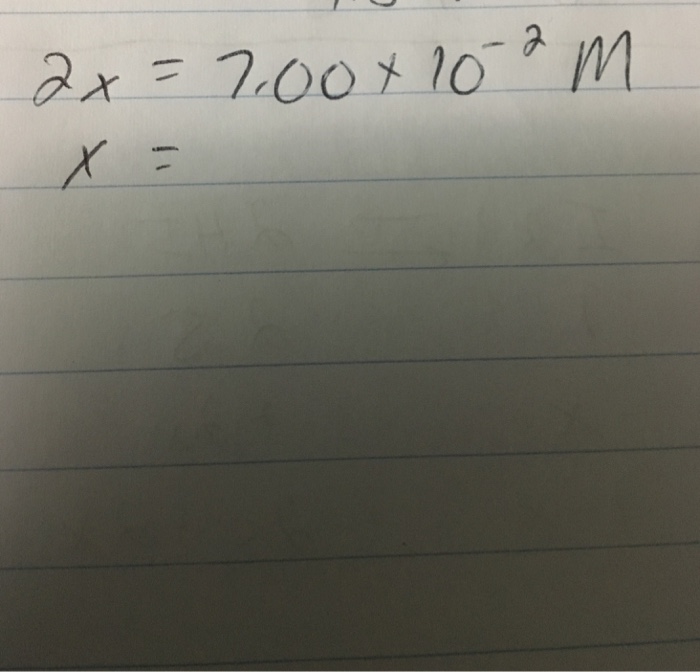 2x = 7.00 x 10⁻² M
x =